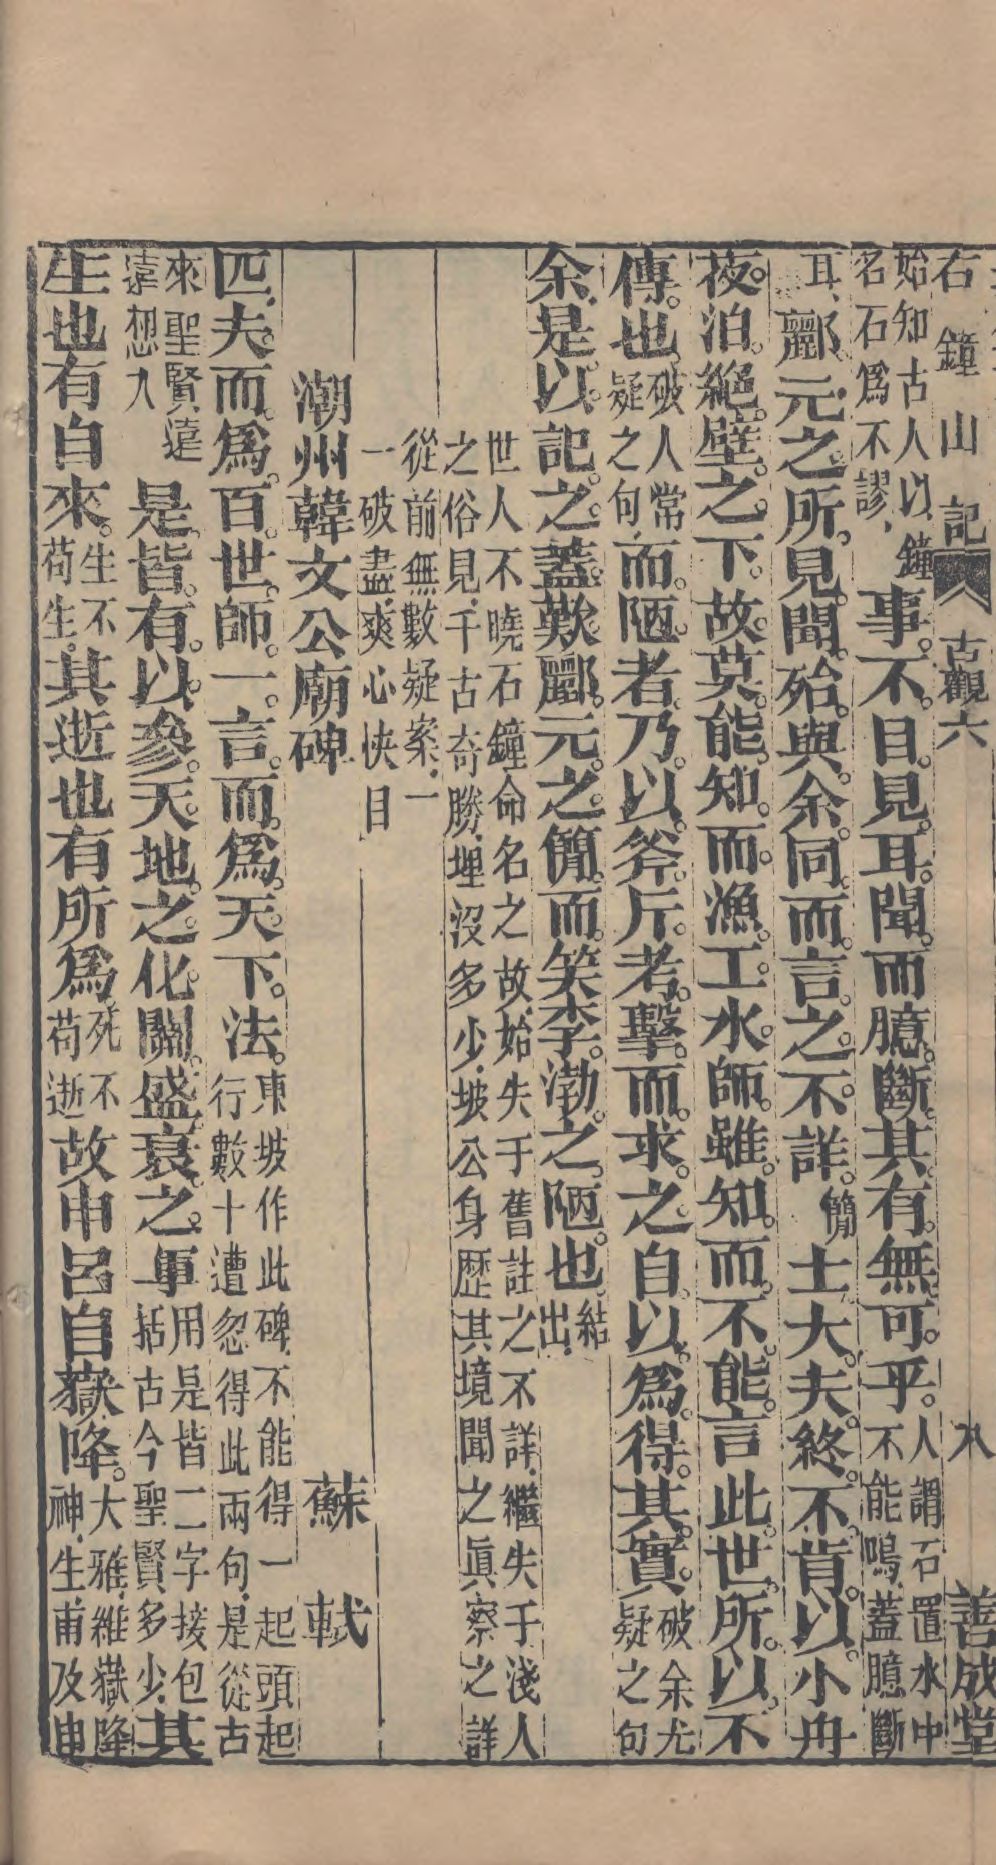 石鐘山記 古觀六 八 善成堂
始知古人以鐘名石爲不謬、事不目見耳聞而臆斷其有無可乎。人謂石置水中不能鳴、蓋臆斷
耳、酈元之所見聞殆與余同而言之不詳。簡士大夫終不肯以小舟
夜泊絕壁之下故莫能知而漁工水師雖知而不能言此世所以不
傳也破人常疑之句、而陋者乃以斧斤考擊而求之自以爲得其實。破余尤疑之句
余是以記之蓋歎酈元之簡而笑李渤之陋也結出、
世人不曉石鐘命名之故、始失于舊註之不詳、繼失于淺人
之俗見、千古奇勝、埋沒多少、坡公身歷其境聞之眞察之詳
從前無數疑案、一
一破盡爽心快目
潮州韓文公廟碑 蘇軾
匹夫而爲百世師一言而爲天下法。東坡作此碑、不能得一起頭起行數十遭忽得此兩句、是從古
來聖賢遠遠想入是皆有以參天地之化關盛衰之運用是皆二字接包括古今聖賢多少、其
生也有自來。生不苟生。其逝也有所爲。死不苟逝故申呂自嶽降。大雅、維嶽降神、生甫及申